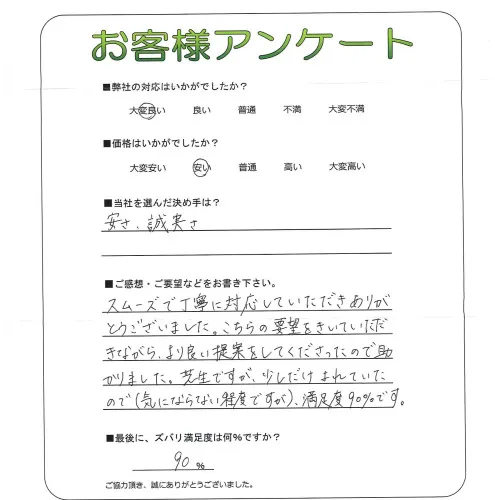 お客様アンケート
■弊社の対応はいかがでしたか？
大変良い 良い 普通 不満 大変不満
■価格はいかがでしたか？
大変安い 安い 普通 高い 大変高い
■当社を選んだ決め手は？
安さ、誠実さ
■ご感想・ご要望などをお書き下さい。
スムーズで丁寧に対応していただきありが
とうございました。こちらの要望をきいていただ
きながら、より良い提案をしてくださったので助
かりました。芝生ですが、少しだけよれていた
ので(気にならない程度ですが)、満足度90%です。
■最後に、ズバリ満足度は何%ですか？
90 %
ご協力頂き、誠にありがとうございました。